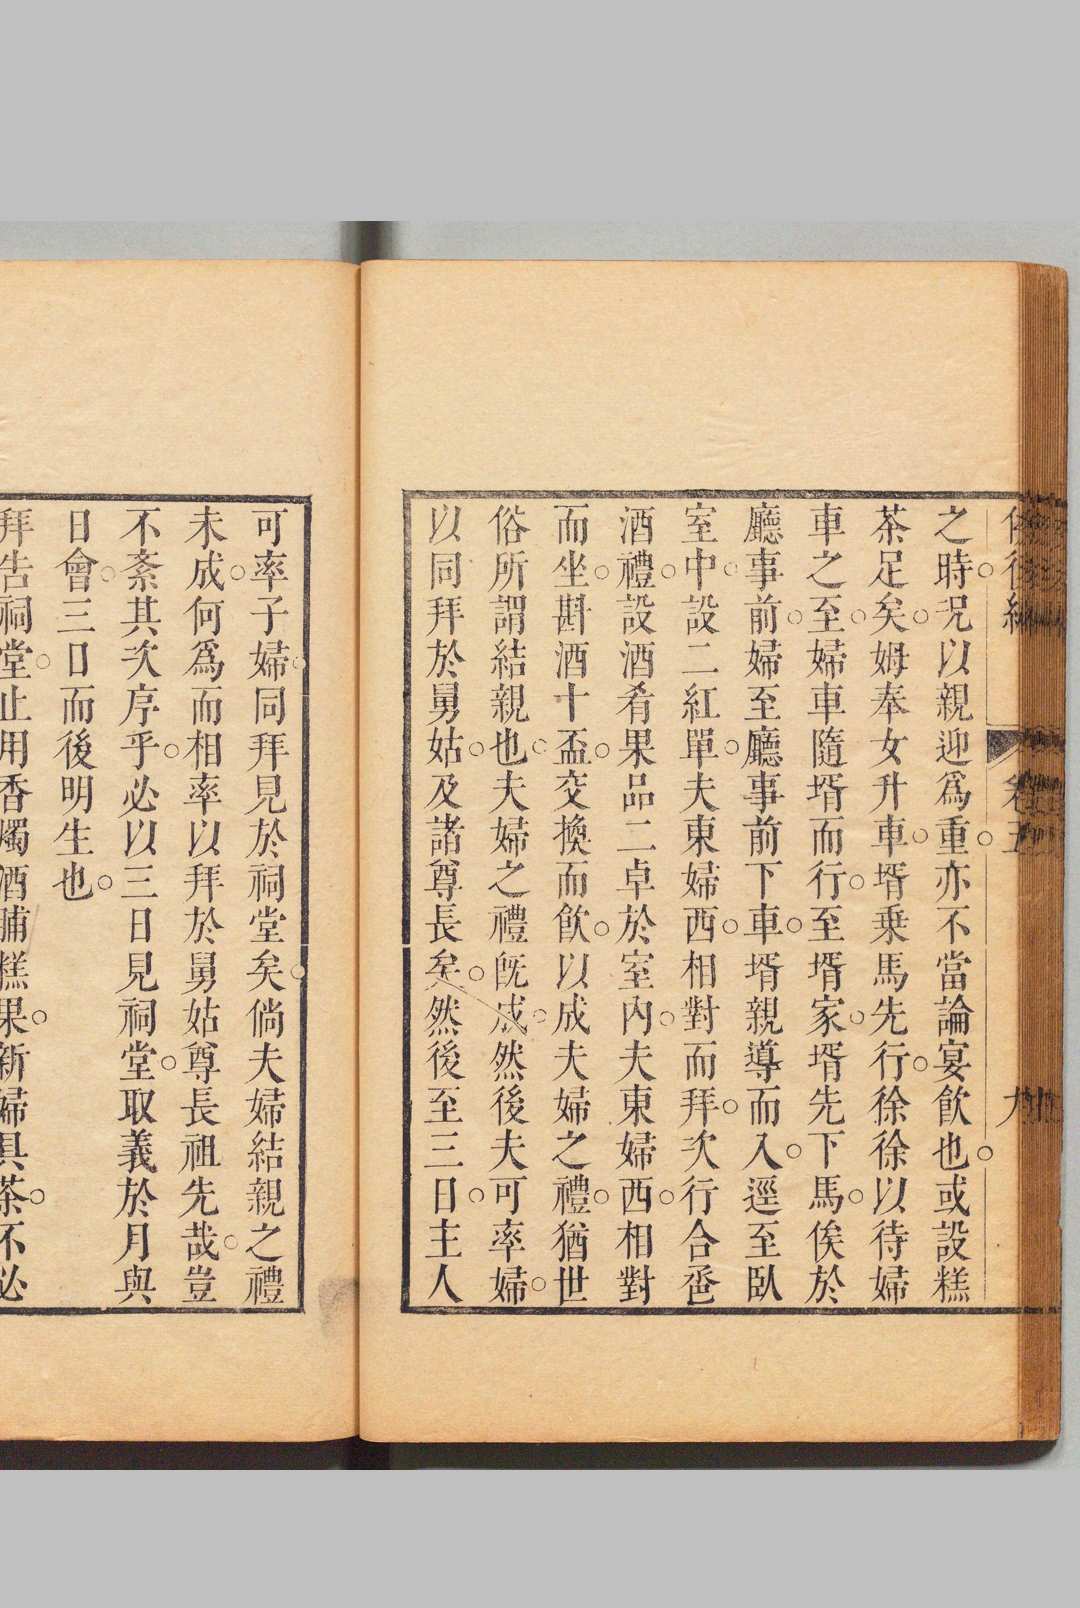 後編 卷五 九
之時。况以親迎爲重。亦不當論宴飲也。或設糕
茶足矣。姆奉女升車。壻乗馬先行。徐徐以待婦
車之至。婦車隨壻而行。至壻家。壻先下馬。俟於
廳事前。婦至廳事前下車。壻親導而入。逕至臥
室中。設二紅單。夫東婦西。相對而拜。次行合巹
酒禮。設酒肴果品二卓於室內。夫東婦西。相對
而坐。斟酒十盃。交換而飲。以成夫婦之禮。猶世
俗所謂結親也。夫婦之禮旣成。然後夫可率婦。
以同拜於舅姑。及諸尊長矣。然後至三日。主人
可率子婦。同拜見於祠堂矣。倘夫婦結親之禮
未成。何爲而相率以拜於舅姑尊長祖先哉。豈
不紊其次序乎。必以三日見祠堂。取義於月與
日會。三日而後明生也。
拜告祠堂。止用香燭酒脯糕果。新婦具茶。不必